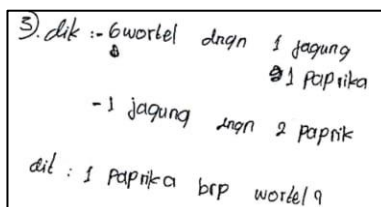 3). dik :- 6 wortel dngn 1 jagung
1 paprika
- 1 jagung dngn 2 paprik
dit : 1 paprika brp wortel ?